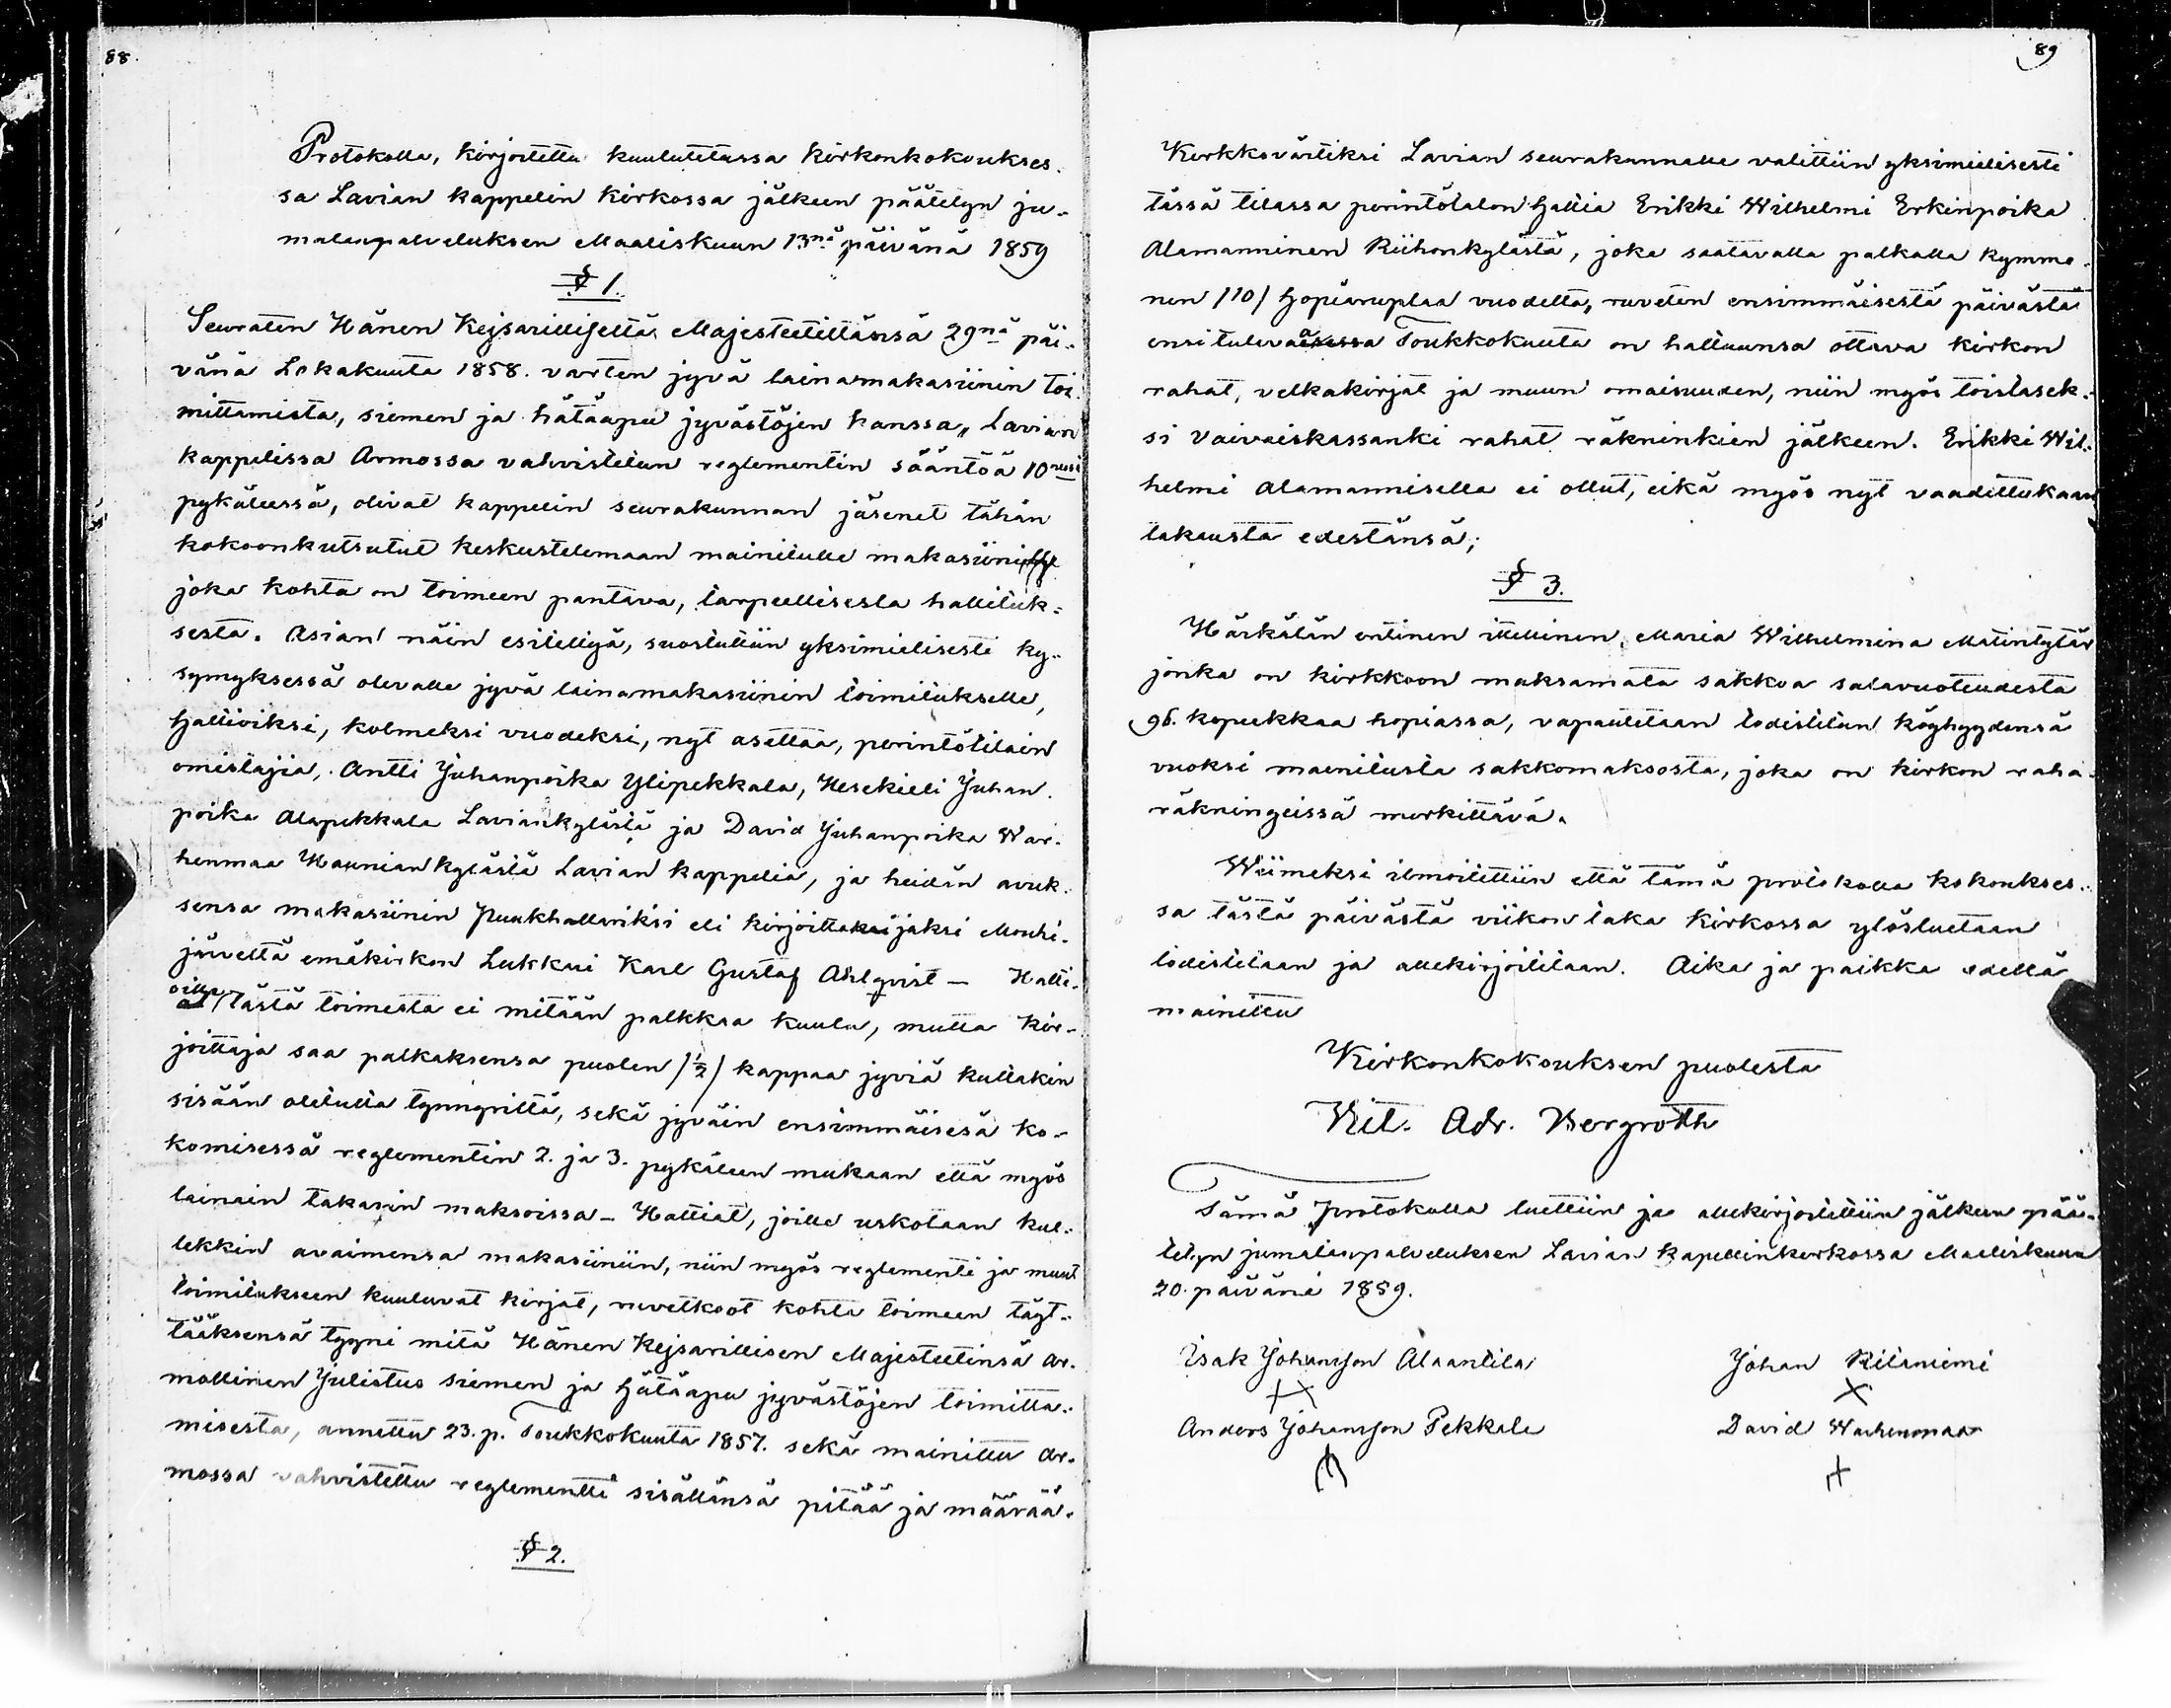 88.
Protokolla, kirjoitettu kuulutetussa kirkonkokoukses-
sa Lavian kappelin kirkossa jälkeen päätetyn ju-
malanpalveluksen Maaliskuun 13nä päivänä 1859
§ 1.
Seuraten Hänen Kejsarilliseltä Majesteetiltänsä 29nä päi-
vänä Lokakuuta 1858. varten jyvä lainamakasiinin toi-
mittamista, siemen ja hätäapu jyvästöjen kanssa, Lavian
kappelissa Armossa vahvistetun reglementin sääntöä 10nessä
pykäleessä, olivat kappelin seurakunnan jäsenet tähän
kokoonkutsutut keskustelemaan mainitulle makasiinille
joka kohta on toimeen pantava, tarpeellisesta hallituk-
sesta. Asian näin esiteltyä, suostuttiin yksimielisesti ky-
symyksessä olevalle jyvä lainamakasiinin toimitukselle,
Halliviksi, kolmeksi vuodeksi, nyt asettaa, perintötilain
omistajia, Antti Juhanpoika Ylipekkala, Hesekieli Juhan-
poika Alapekkala Laviankylästä ja David Juhanpoika War-
henmaa Hauniankylästä Lavian kappelia, ja heidän avuk-
sensa makasiinin Puukhallariksi eli kirjoittajaksi Mouhi-
järveltä emäkirkon Lukkari Karl Gustaf Ahlqvist — Halti-
oilla tästä toimesta ei mitään palkkaa kuulu, mutta kir-
joittaja saa palkaksensa puolen /½/ kappaa jyviä kultakin
sisään otetulta tynnyriltä, sekä jyväin ensimmäisesä ko-
komisessa reglementin 2. ja 3. pykäleen mukaan että myös
lainain takasin maksoissa — Haltiat, joille uskotaan kul-
lekkin avaimensa makasiiniin, niin myös reglementi ja muut
toimitukseen kuuluvat kirjat, ruvetkoot kohta toimeen täyt-
tääksensä tyyni mitä Hänen Kejsarillisen Majesteetinsä Ar-
mollinen Julistus siemen ja Hätäapu jyvästöjen toimitta-
misesta, annettu 23. p. Toukkokuuta 1857. sekä mainittu Ar-
mossa vahvistettu reglementti sisällänsä pitää ja määrää.
§ 2.
89
Kirkkovärtiksi Lavian seurakunnalle valittiin yksimielisesti
tässä tilassa perintötalon Haltia Erikki Wilhelmi Erkinpoika
Alamanninen Riihonkylästä, joka saatavalla palkalla kymme-
nen /10/ Hopiaruplaa vuodelta, ruveten ensimmäisestä päivästä
ensitulevaa Toukkokuuta on haltuunsa ottava kirkon
rahat, velkakirjat ja muun omaisuuden, niin myös toistasek-
si Vaivaiskassanki rahat räkninkien jälkeen. Erikki Wil-
helmi Alamannisella ei ollut, eikä myös nyt vaadittukaan
takausta edestänsä;
§ 3.
Härkälän entinen itellinen Maria Wilhelmina Matintytär
jonka on kirkkoon maksamata sakkoa salavuoteudesta
96. kopeekkaa hopiassa, vapautetaan todistetun köyhyydensä
vuoksi mainitusta sakkomaksosta, joka on kirkon raha-
räkningeissä merkittävä.
Wiimeksi ilmoitettiin että tämä protokolla kokoukses-
sa tästä päivästä viikon taka kirkossa ylösluetaan
todistetaan ja allekirjoitetaan. Aika ja paikka edellä
mainittu
Kirkonkokouksen puolesta
Vil. Adr. Bergroth
Tämä Protokolla luettiin ja allekirjoitettiin jälkeen pää-
tetyn jumalanpalveluksen Lavian kapellinkirkossa Maaliskuun
20. päivänä 1859.
Isak Johansson Alaantila Johan Riiliniemi
Anders Johansson Pekkala David Warhenmaa